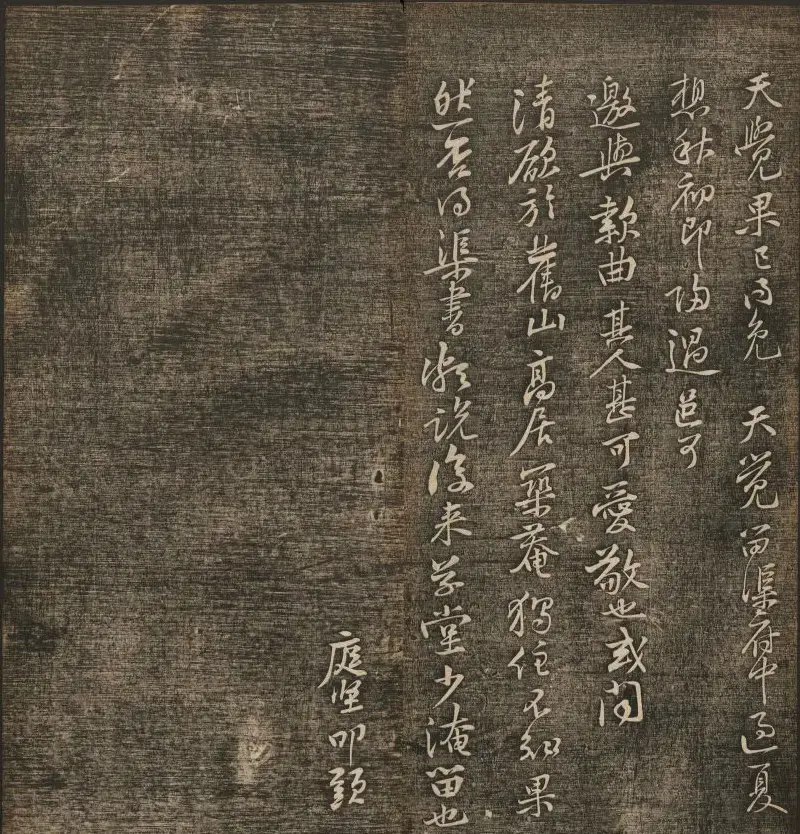 天覺果已得免 天覺留渠府中過夏
想秋初即歸過邑可
邀與款曲其人甚可愛敬也或聞
清願於舊山高居築菴獨住不知果
然否得渠書頗說後來草堂少淹留也
庭堅叩頭